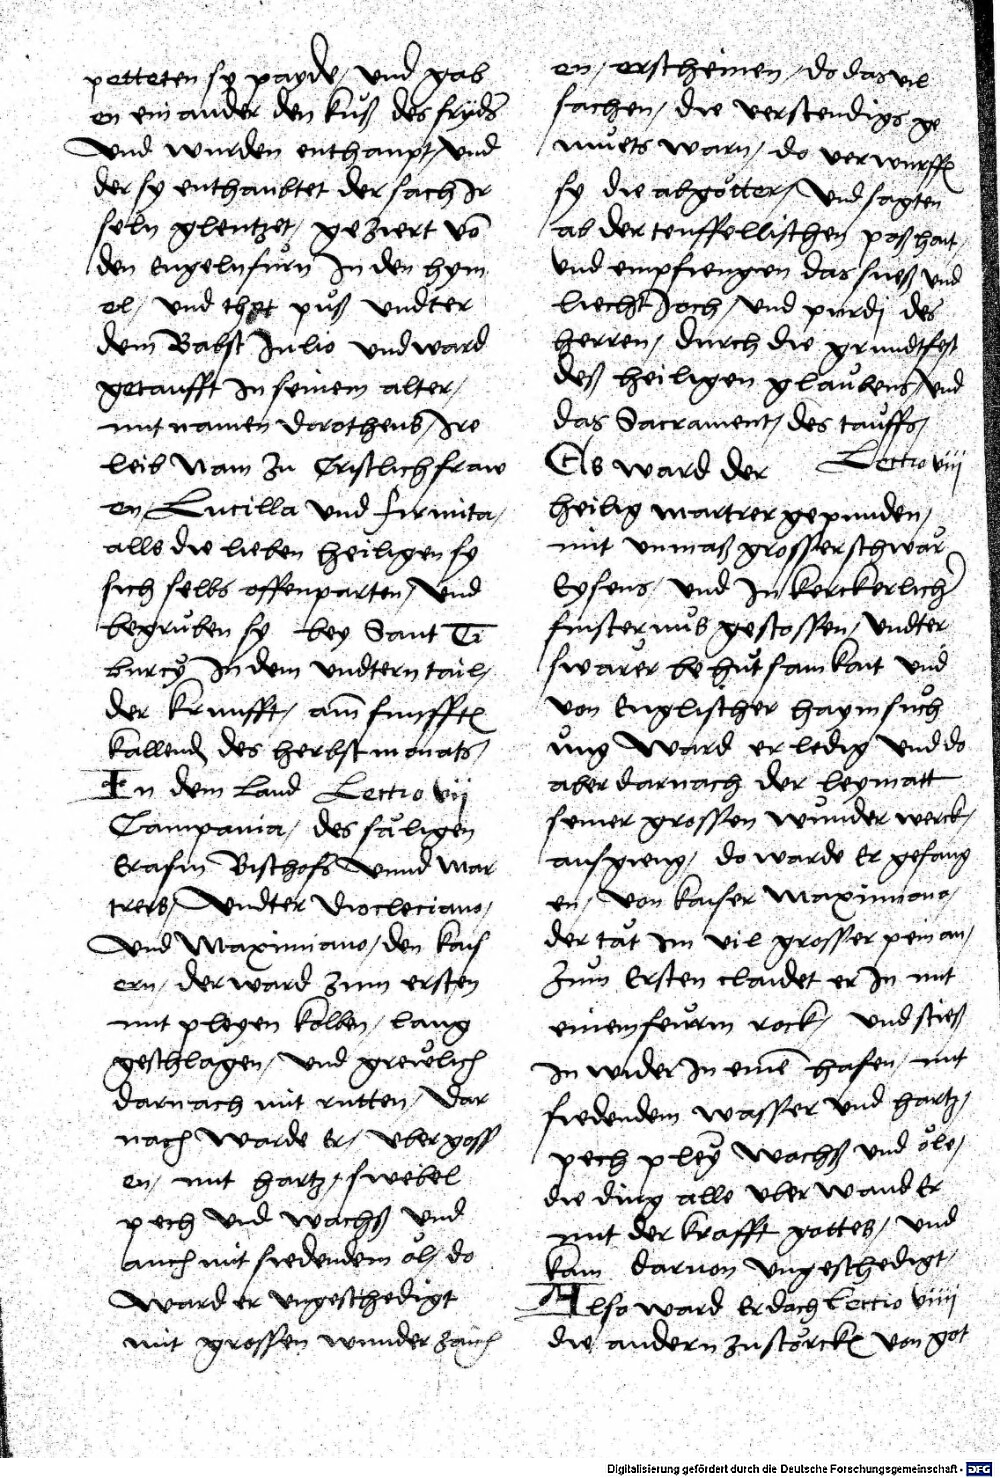 petteten sy payde / und gab
en ein ander den kuß des frÿds
Und wurden enthaupt / und
der sy enthaubtet der sach Jr
seln glentzet / geziert vo̅
den Engeln fůrn In den hym
el / und thet půß undter
dem Babst Julio und ward
getaufft In seinem alter /
mit namen dorotheus / Ire
leib Nam zu Cristlich fraw
en / Lucilla und firmita /
alls die lieben heiligen sy
sich selbs offenparten / Und
begruben sy bey Sant Ti
burcÿ In dem undtern tail /
der krufft / am funfften
kallend des herbstmonats /
In dem Land Lectio vij
Campania / des såligen
Erasm Bischofs Unnd Mar
trers / Undter Diocleciano /
Und Maximiano / den kais
ern / der ward zum ersten
mit pleyen kolben / lang
geschlagen / und greulich
darnach mit rutten / Dar
nach warde Er / ubergoss
en / mit hartz / swebel
pech und wachß und
auch mit siedendem öl / do
Ward er ungeschedigt
mit grossen wunder zaich
en / erscheinen / do das vil
sachen / die verstendigs ge
muets warn / do verwurffen
sy die abgötter / Und sagten
ab der teuffellischen poßhait /
Und empfiengen das sueß und
liecht Joch / und purdj des
herren / durch die grundtfest
deß heiligen glaubens / und
das Sacrament / des tauffs /
Es ward der Lectio viij
heilig martrer gepunden /
mit unmaß grosser schwår
Eysens / und In kerckerlicher
finsternus gestossen / undter
swarer behutsamkait und
von Englischer haymsuch
ung Ward er ledig Und do
aber darnach der leymatt
seiner grossen wunderwerck /
ausgieng / do warde Er gefang
en / Von kaiser Maximiano /
der tåt im vil grosser pein an /
Zum Ersten claidet er In mit
einem feurin rock / und stieß
In wider In einē hafen / mit
siedendem wasser Und hartz /
pech pleÿ Wachß und öle /
die ding alle uberwand Er
mit der krafft gottes / und
kam daruon Ungeschedigt /
Also ward Er dach Lectio viiij
die andern zu störcken von got
Digitalisierung gefördert durch die Deutsche Forschungsgemeinschaft - DFG